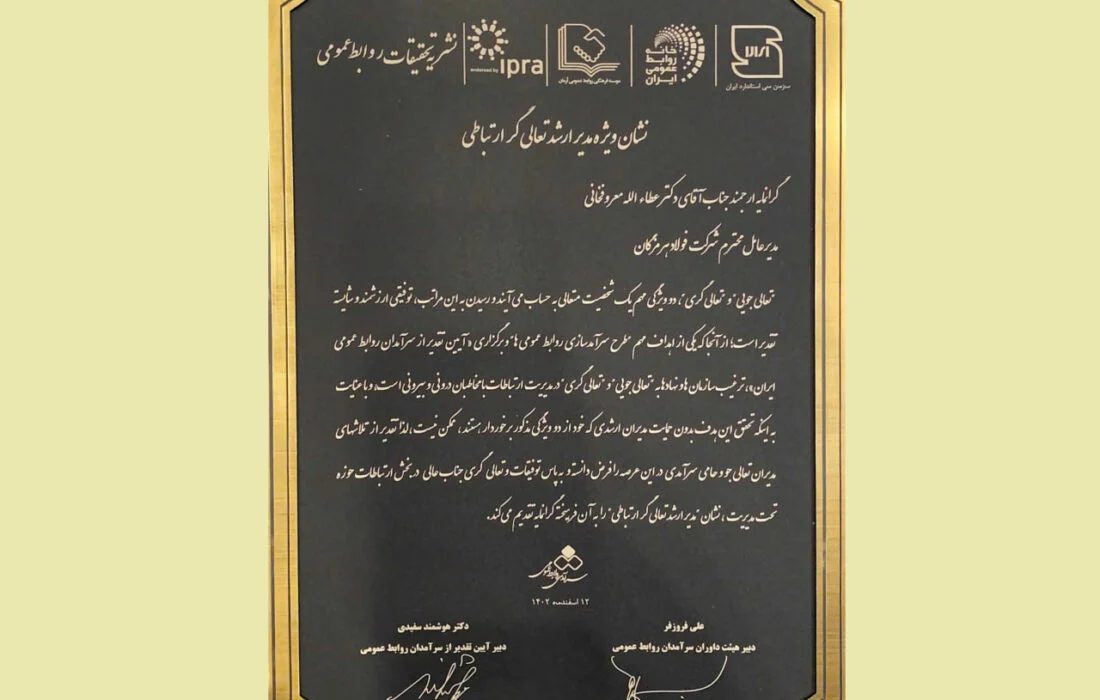 نشریه تحقیقات روابط عمومی
endorsed by ipra
موسسه فرهنگی روابط عمومی آرمان
خانه
روابط
عمومی
ایران
سرزمین سی استاندارد ایران
نشان ویژه مدیر ارشد تعالی گر ارتباطی
گرانمایه ارجمند جناب آقای دکتر عطاء الله معروفخانی
مدیرعامل محترم شرکت فولاد هرمزگان
"تعالی جویی" و "تعالی گری"، دو ویژگی مهم یک شخصیت متعالی به حساب می آیند و رسیدن به این مراتب، توفیقی ارزشمند و شایسته
تقدیر است؛ از آنجا که یکی از اهداف مهم "طرح سرآمدسازی روابط عمومی ها" و برگزاری «آیین تقدیر از سرآمدان روابط عمومی
ایران»، ترغیب سازمان ها و نهادها به "تعالی جویی" و "تعالی گری" در مدیریت ارتباطات با مخاطبان درونی و بیرونی است، و با عنایت
به اینکه تحقق این هدف بدون حمایت مدیران ارشدی که خود از دو ویژگی مذکور برخوردار هستند، ممکن نیست، لذا تقدیر از تلاشهای
مدیران تعالی جو و حامی سرآمدی در این عرصه را فرض دانسته و به پاس توفیقات و تعالی گری جناب عالی در بخش ارتباطات حوزه
تحت مدیریت، نشان "مدیر ارشد تعالی گر ارتباطی" را به آن فرهیخته گرانمایه تقدیم می کند.
۱۲ اسفندماه ۱۴۰۲
علی فروزفر
دبیر هیئت داوران سرآمدان روابط عمومی
دکتر هوشمند سفیدی
دبیر آیین تقدیر از سرآمدان روابط عمومی